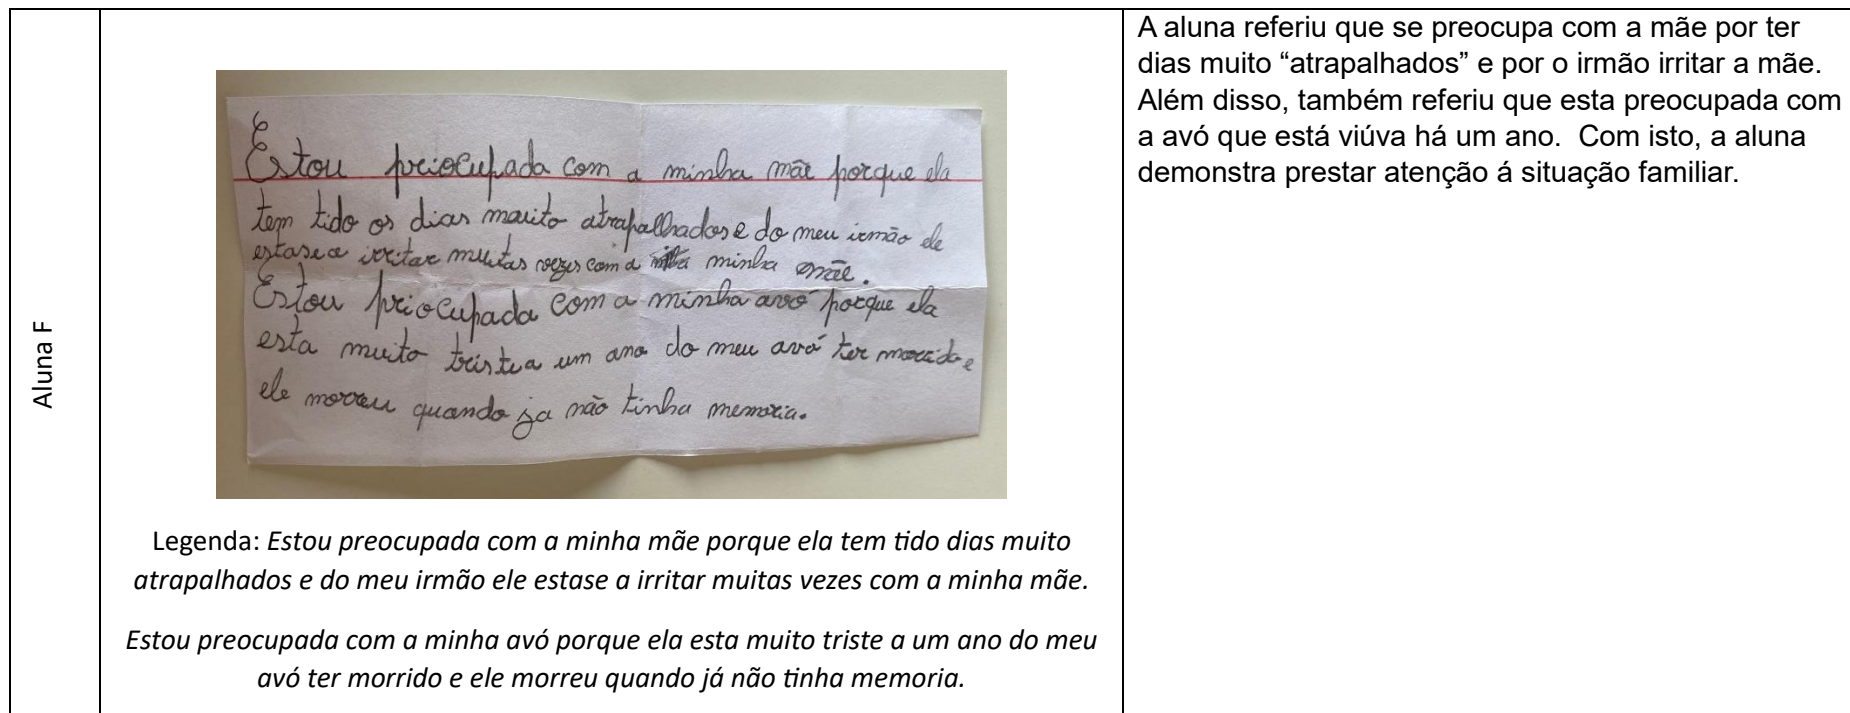 Aluna F
Estou priocupada com a minha mãe porque ela
tem tido os dias muito atrapalhados e do meu irmão ele
estase a irritar muitas vezes com a minha mãe.
Estou priocupada com a minha avó porque ela
esta muito triste a um ano do meu avô ter morrido e
ele morreu quando ja não tinha memoria.
Legenda: Estou preocupada com a minha mãe porque ela tem tido dias muito
atrapalhados e do meu irmão ele estase a irritar muitas vezes com a minha mãe.
Estou preocupada com a minha avó porque ela esta muito triste a um ano do meu
avó ter morrido e ele morreu quando já não tinha memoria.
A aluna referiu que se preocupa com a mãe por ter
dias muito “atrapalhados” e por o irmão irritar a mãe.
Além disso, também referiu que esta preocupada com
a avó que está viúva há um ano. Com isto, a aluna
demonstra prestar atenção á situação familiar.